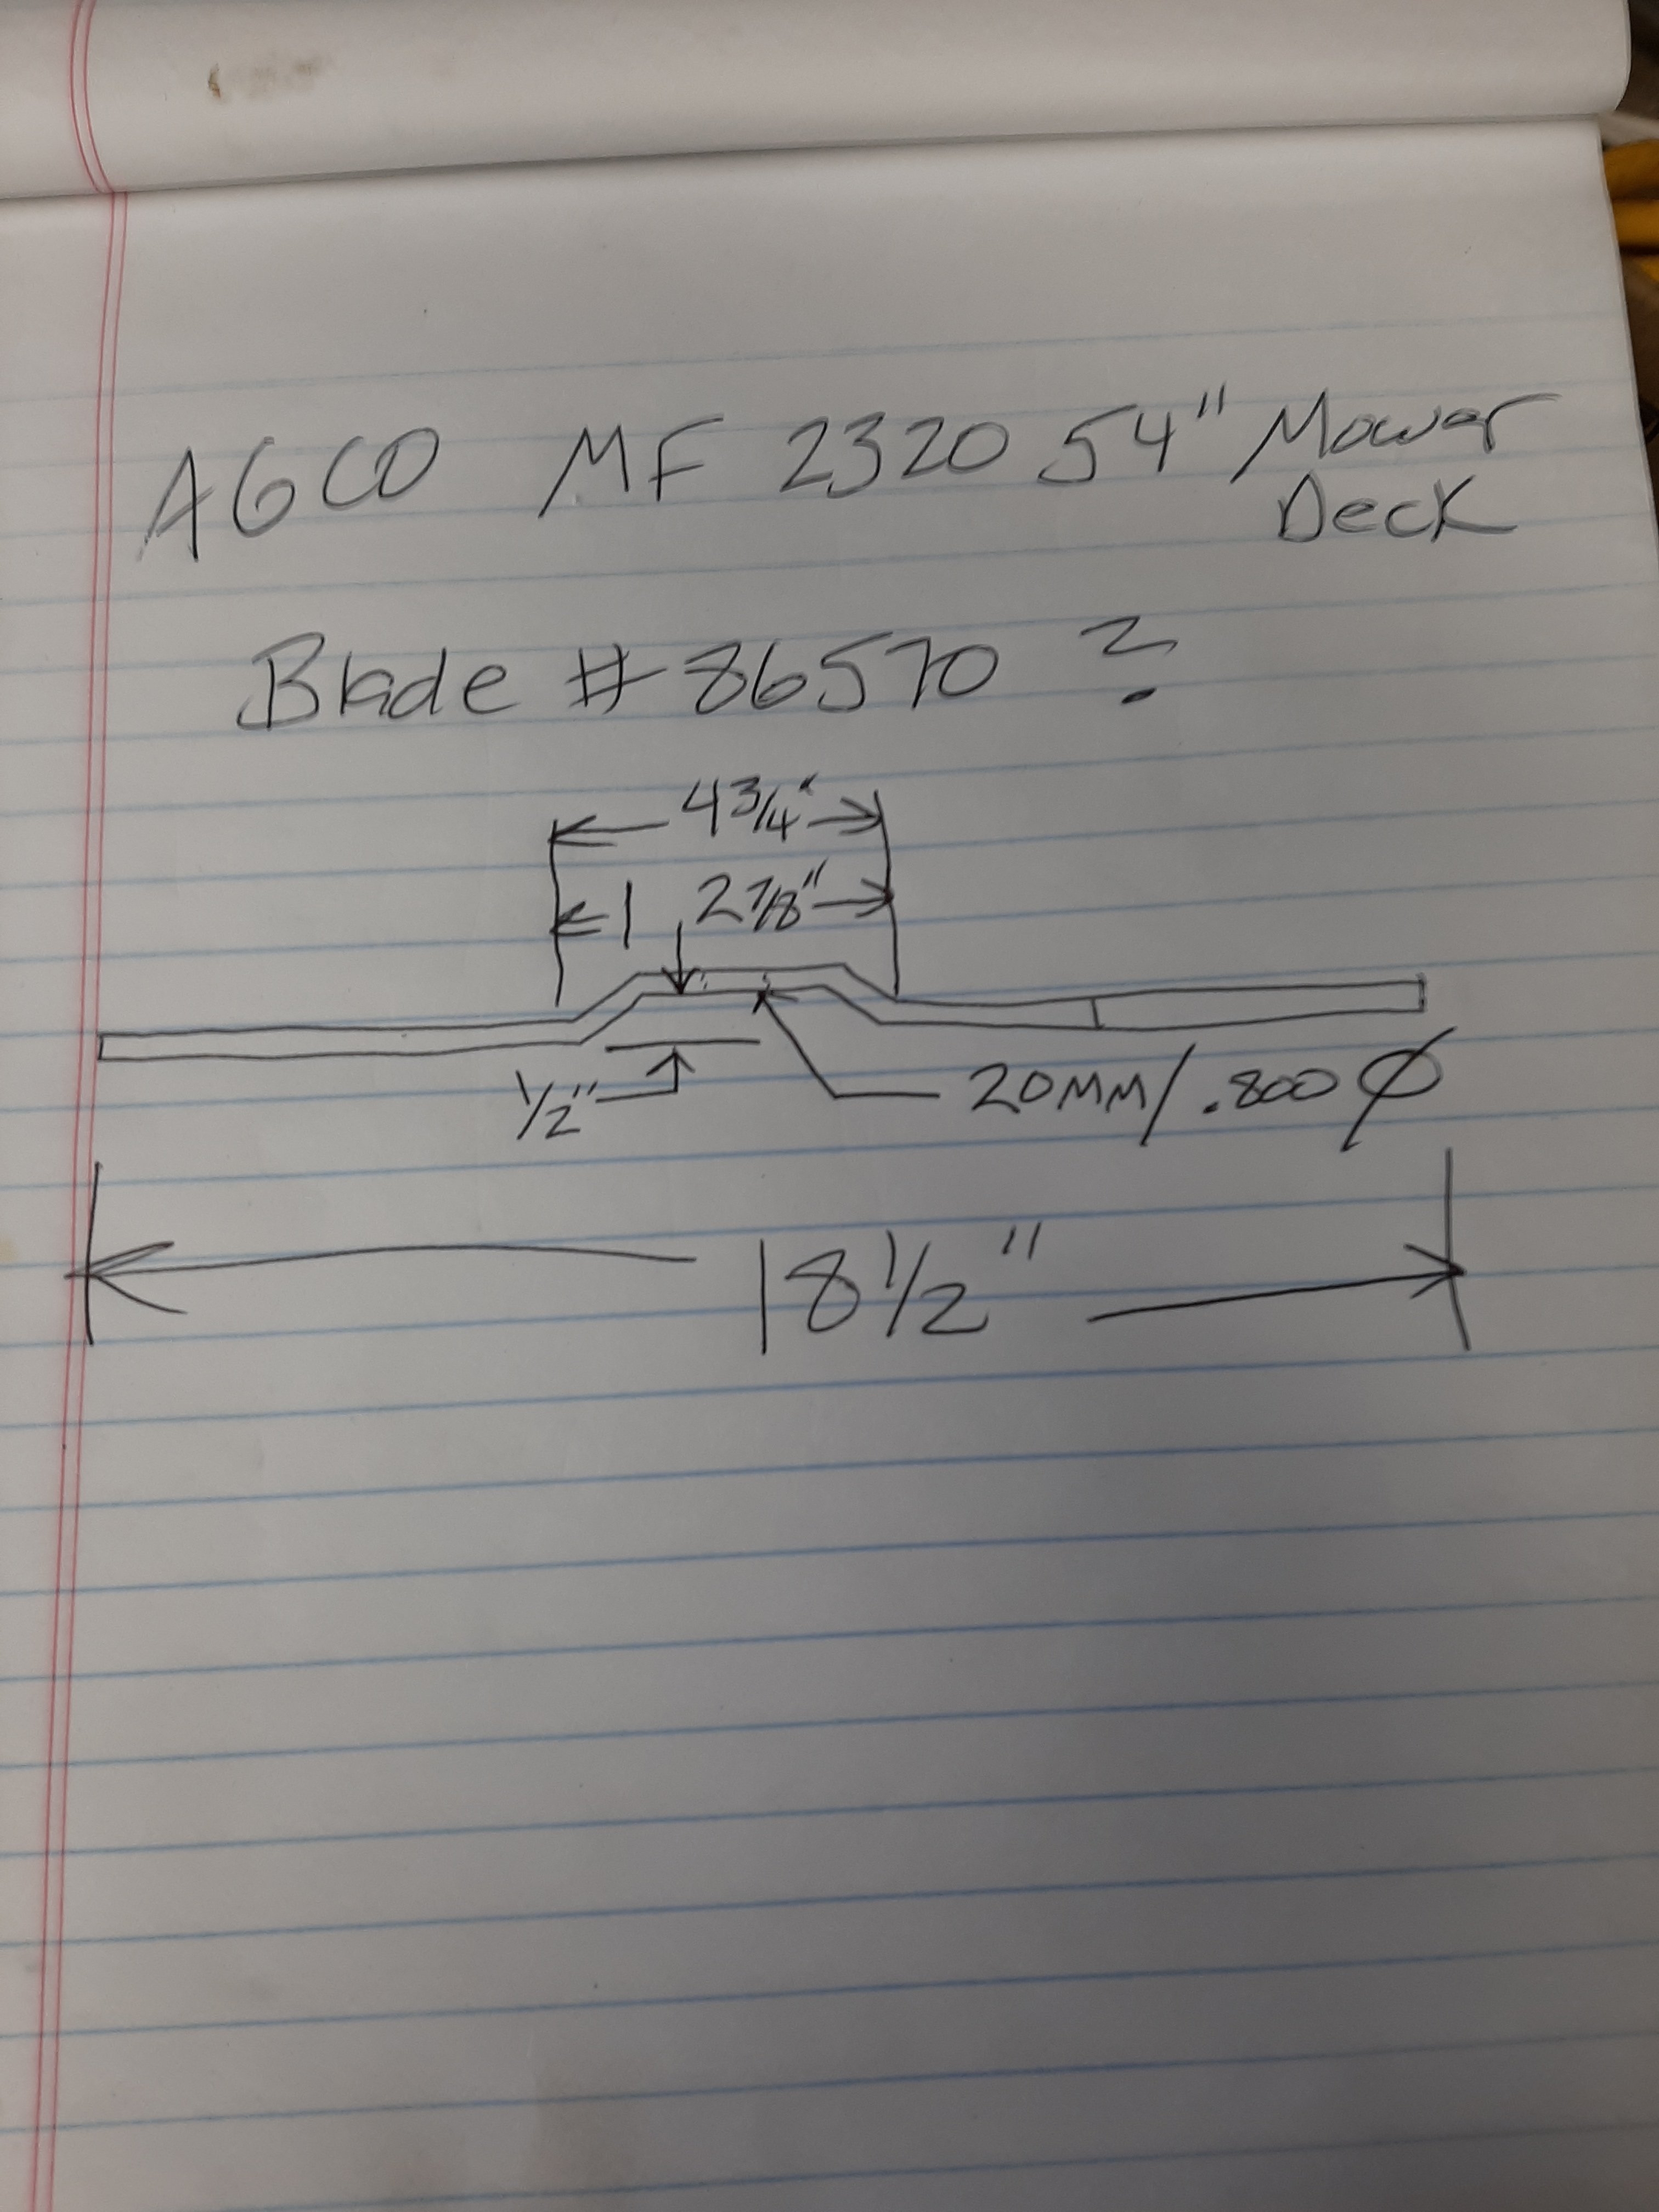 AGCO MF 2320 54" Mower
Deck
Blade # 86570 ?
4 3/4"
2 7/8"
1/2"
20MM/.800 Ø
18 1/2"